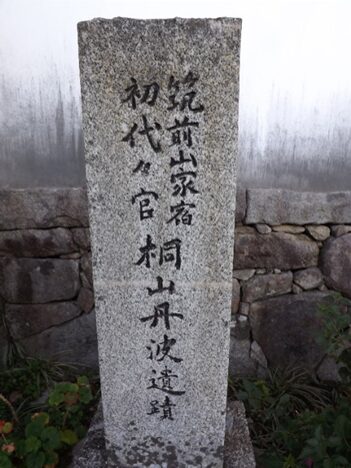 筑前山家宿
初代々官
桐山丹波遺蹟